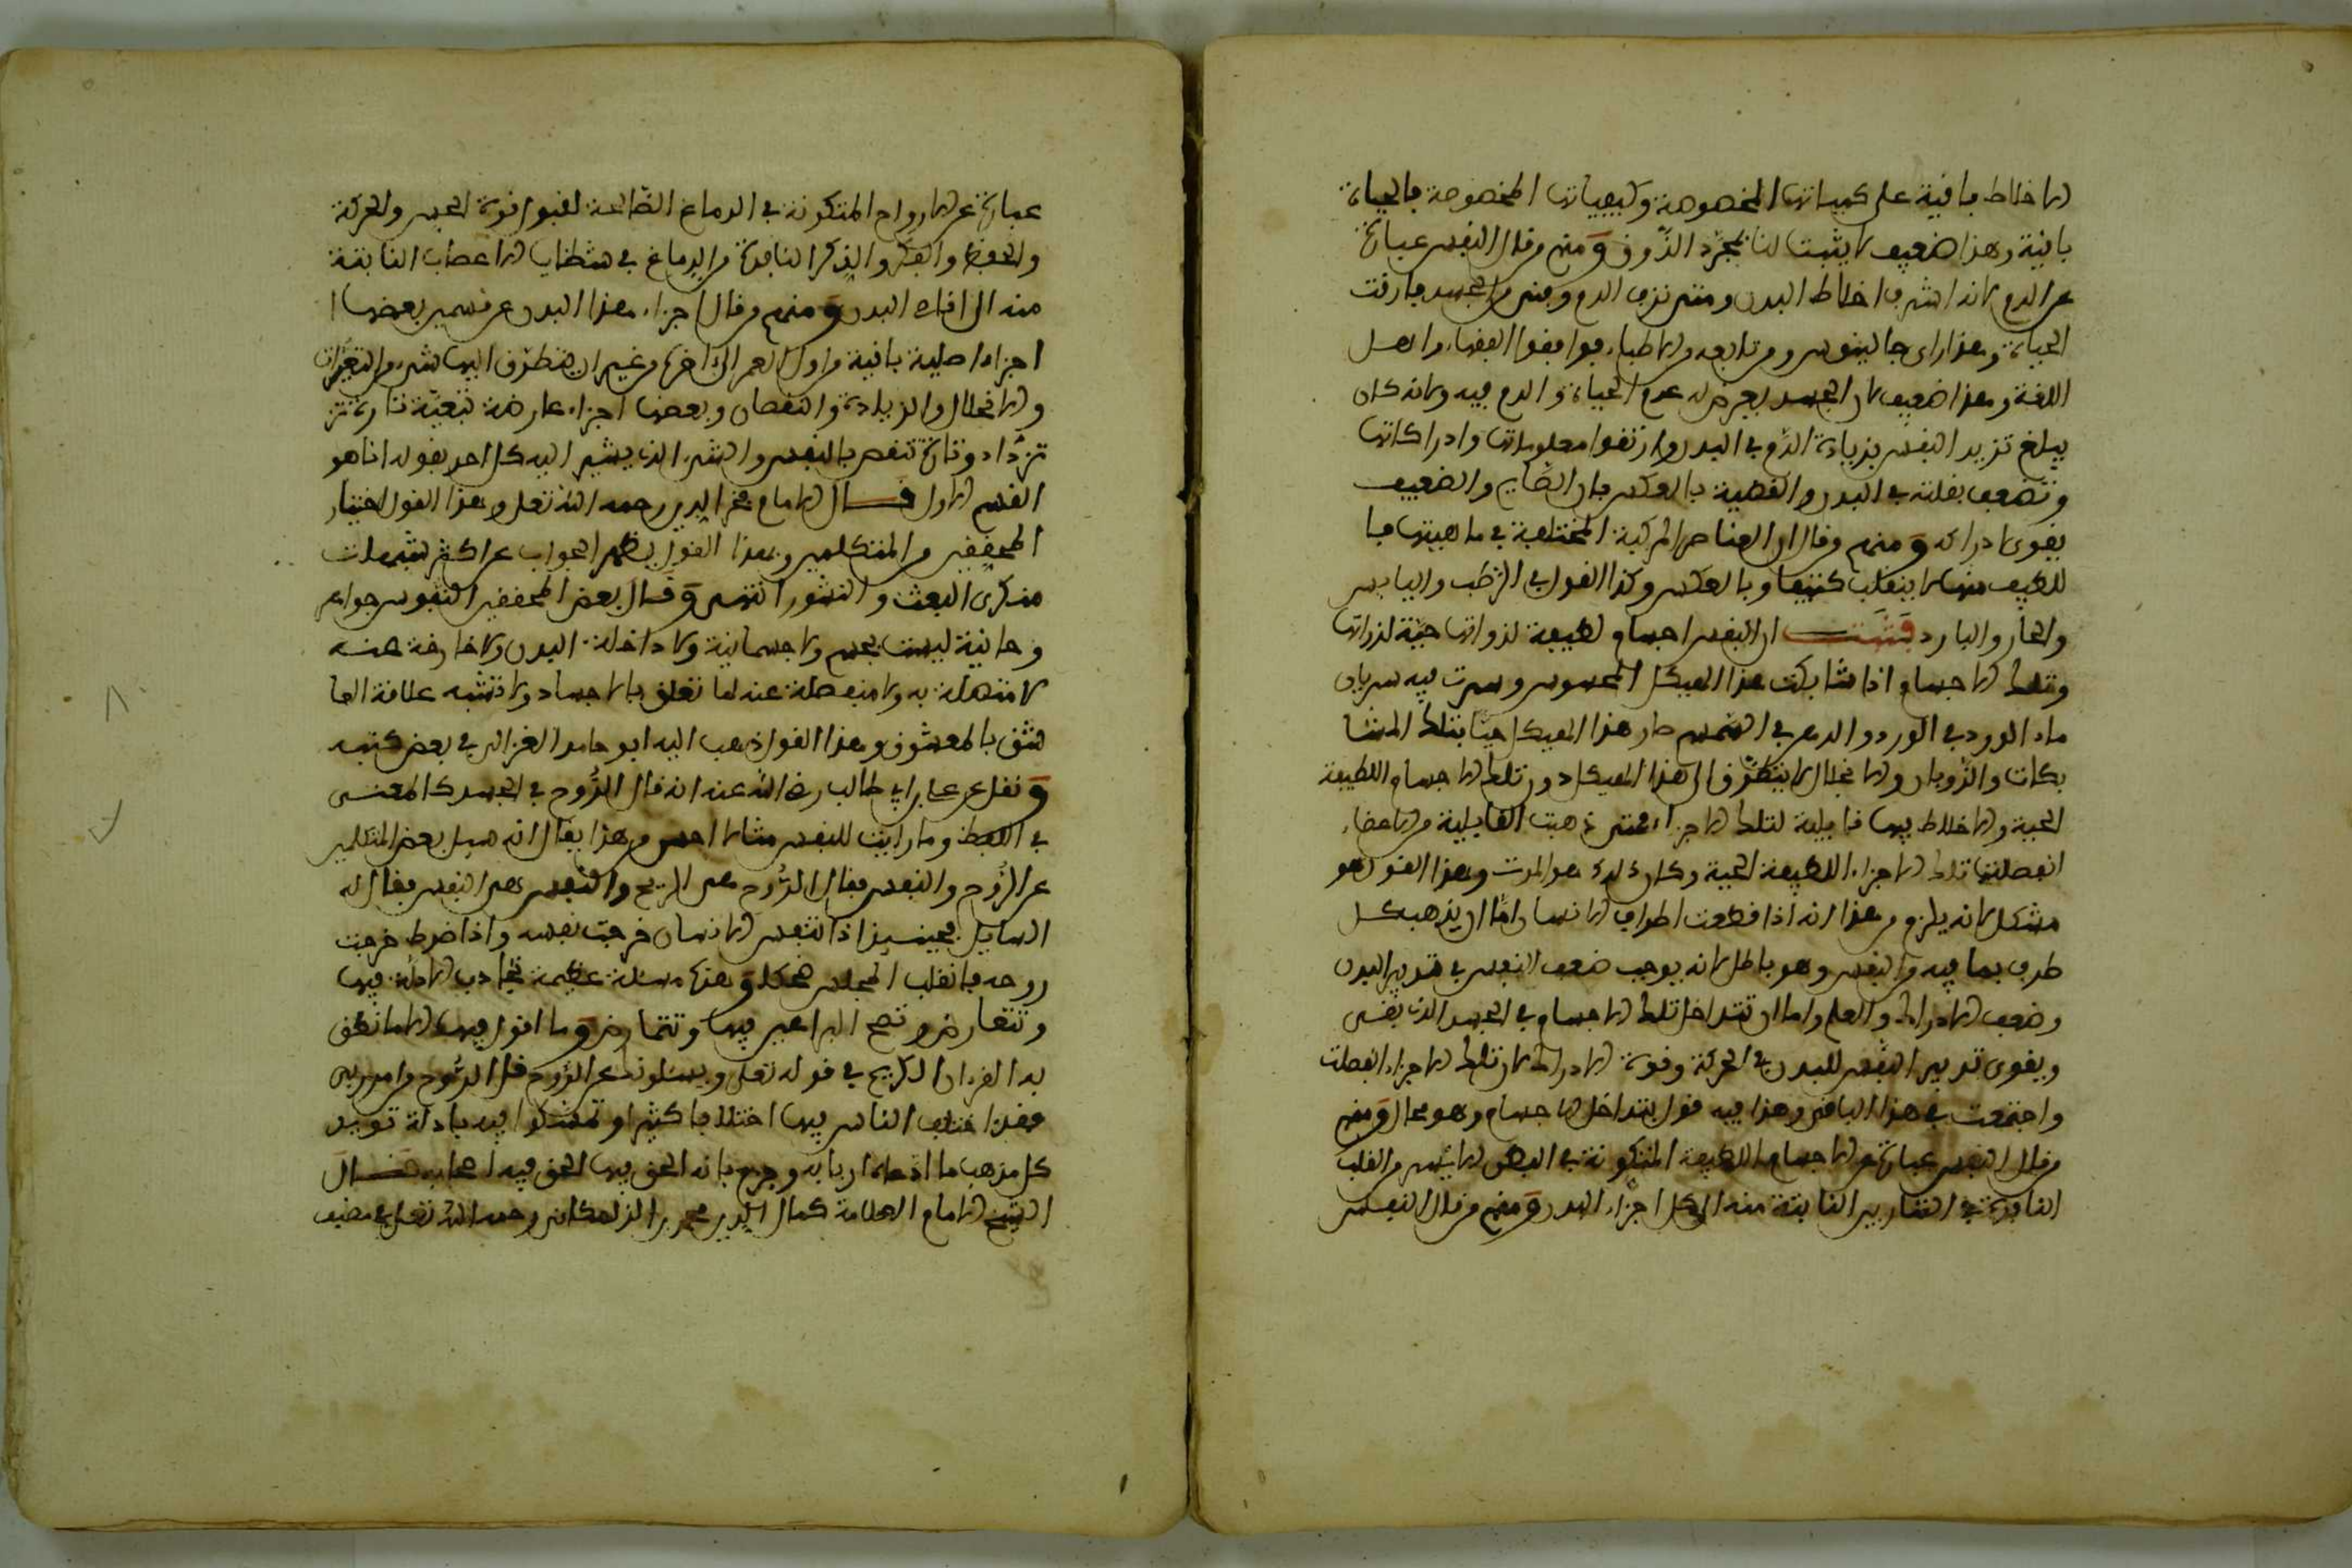 الاخلاط باقية على كمياتها المخصوصة وكيفياتها المخصوصة بالحياة
باقية وهذا ضعيف لا يثبت لنا بمجرد الذوق ومنهم من قال النفس عبارة
عن الدم لانه اشرف اخلاط البدن ومتى نزف الدم وفنى من الجسد فارقت
الحياة وهذا راى جالينوس ومن تابعه من الاطباء فوافقوا الفقهاء واهل
اللغة وهذا ضعيف لان الجسد يعرض له عدم الحياة والدم فيه ولانه كان
يبلغ تزيد النفس بزيادة الدم في البدن وارتقوا معلوماتها وادراكاتها
وتضعف بقلته في البدن والقضية بالعكس فان الصايم والضعيف
يقوى ادراكه ومنهم من قال ان العناصر المركبة المختلفة في ماهيتها فا
للطيف منها لا ينقلب كثيفا وبالعكس وكذا القول في الرطب واليابس
والحار والبارد فثبت ان النفس اجسام لطيفة لذواتها حية لذواتها
وتلك الاجسام اذا شابكت هذا الهيكل المحسوس وسرت فيه سريان
ماء الورد في الورد والدهن في السمسم صار هذا الهيكل حيا بتلك المشا
بكات والذوبان والانحلال لا يتطرق الى هذا الهيكل دون تلك الاجسام اللطيفة
الحية والاخلاط فيها قابلية لتلك الاجزاء فمتى ذهبت القابلية من الاعضاء
انفصلت تلك الاجزاء اللطيفة الحية وكان ذلك هو الموت وهذا القول هو
مشكل لانه يلزم من هذا انه اذا قطعت اطراف الانسان اما ان يذهب كل
طرف بما فيه من النفس وهو باطل لانه يوجب ضعف النفس في تدبير البدن
وضعف الادراك والعلم واما ان تتداخل تلك الاجسام في الجسد الذي بقى
ويقوى تدبير النفس للبدن في الحركة وقوة الادراك لان تلك الاجزاء انفصلت
واجتمعت في هذا الباقى وهذا فيه قول بتداخل الاجسام وهو محال ومنهم
من قال النفس عبارة عن الاجسام اللطيفة المتكونة في البطن الايسر من القلب
النافذة في الشرايين النابتة منه الى كل اجزاء البدن ومنهم من قال النفس
عبارة عن الارواح المتكونة في الدماغ الصالحة لقبول قوة الحس والحركة
والحفظ والفكر والذكر النافذة من الدماغ في شظايا الاعصاب النابتة
منه الى اقاصى البدن ومنهم من قال اجزاء هذا البدن على قسمين بعضها ا
اجزاء اصلية باقية من اول العمر الى اخره من غير ان يتطرق اليها شىء من التغيرات
والانحلال والزيادة والنقصان وبعضها اجزاء عارضة تبعية تارة تز
تزداد وتارة تنقص بالنفس والشىء الذي يشير اليه كل احد بقوله انا هو
القسم الاول قال الامام فخر الدين رحمه الله تعلى وهذا القول اختيار
المحققين من المتكلمين وبهذا القول يظهر الجواب عن اكثر شبهات
منكرى البعث والنشور انتهى وقال بعض المحققين النفوس جواهر
روحانية ليست بجسم ولا جسمانية ولا داخلة البدن ولا خارجة عنه
لا متصلة به ولا منفصلة عنه لها تعلق بالاجساد ولا تشبه علاقة العا
شق بالمعشوق وهذا القول ذهب اليه ابو حامد الغزالى في بعض كتبه
ونقل عن على بن ابي طالب رضى الله عنه انه قال الروح في الجسد كالمعنى
في اللفظ وما رايت للنفس مثالا احسن من هذا يقال انه سيل بعض المتكلمين
عن الروح والنفس فقال الروح هى الريح والنفس هى النفس فقال له
السايل فحينيذ اذا تنفس الانسان خرجت نفسه واذا ضرط خرجت
روحه فانقلب المجلس ضحكا وهذه مسئلة عظيمة تجاذب الادلة فيها
وتتعارض وتصح البراهين فيها وتتمارض وما اقول فيها الا ما نطق
به القرءان الكريم في قوله تعلى ويسئلونك عن الروح قل الروح من امر ربى
فقد اختلف الناس فيها اختلافا كثيرا وتمسكوا فيه بادلة توید
كل مذهب ما ادعاه اربابه وجزم بانه الحق فيها الحق فيه اصحابه قال
الشيخ الامام العلامة كمال الدين محمد بن الزملكانى رحمه الله تعلى في مصنف